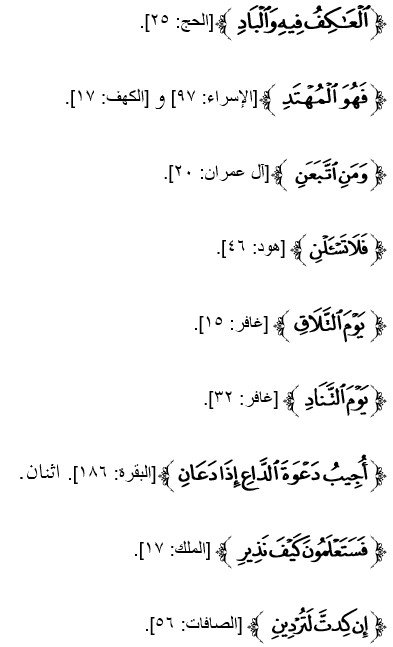 ﴿ ٱلۡعَٰكِفُ فِيهِ وَٱلۡبَادِ ﴾ [الحج: ٢٥].
﴿ فَهُوَ ٱلۡمُهۡتَدِ ﴾ [الإسراء: ٩٧] و [الكهف: ١٧].
﴿ وَمَنِ ٱتَّبَعَنِ ﴾ [آل عمران: ٢٠].
﴿ فَلَا تَسۡـَٔلۡنِ ﴾ [هود: ٤٦].
﴿ يَوۡمَ ٱلتَّلَاقِ ﴾ [غافر: ١٥].
﴿ يَوۡمَ ٱلتَّنَادِ ﴾ [غافر: ٣٢].
﴿ أُجِيبُ دَعۡوَةَ ٱلدَّاعِ إِذَا دَعَانِ ﴾ [البقرة: ١٨٦]. اثنان.
﴿ فَسَتَعۡلَمُونَ كَيۡفَ نَذِيرِ ﴾ [الملك: ١٧].
﴿ إِن كِدتَّ لَتُرۡدِينِ ﴾ [الصافات: ٥٦].